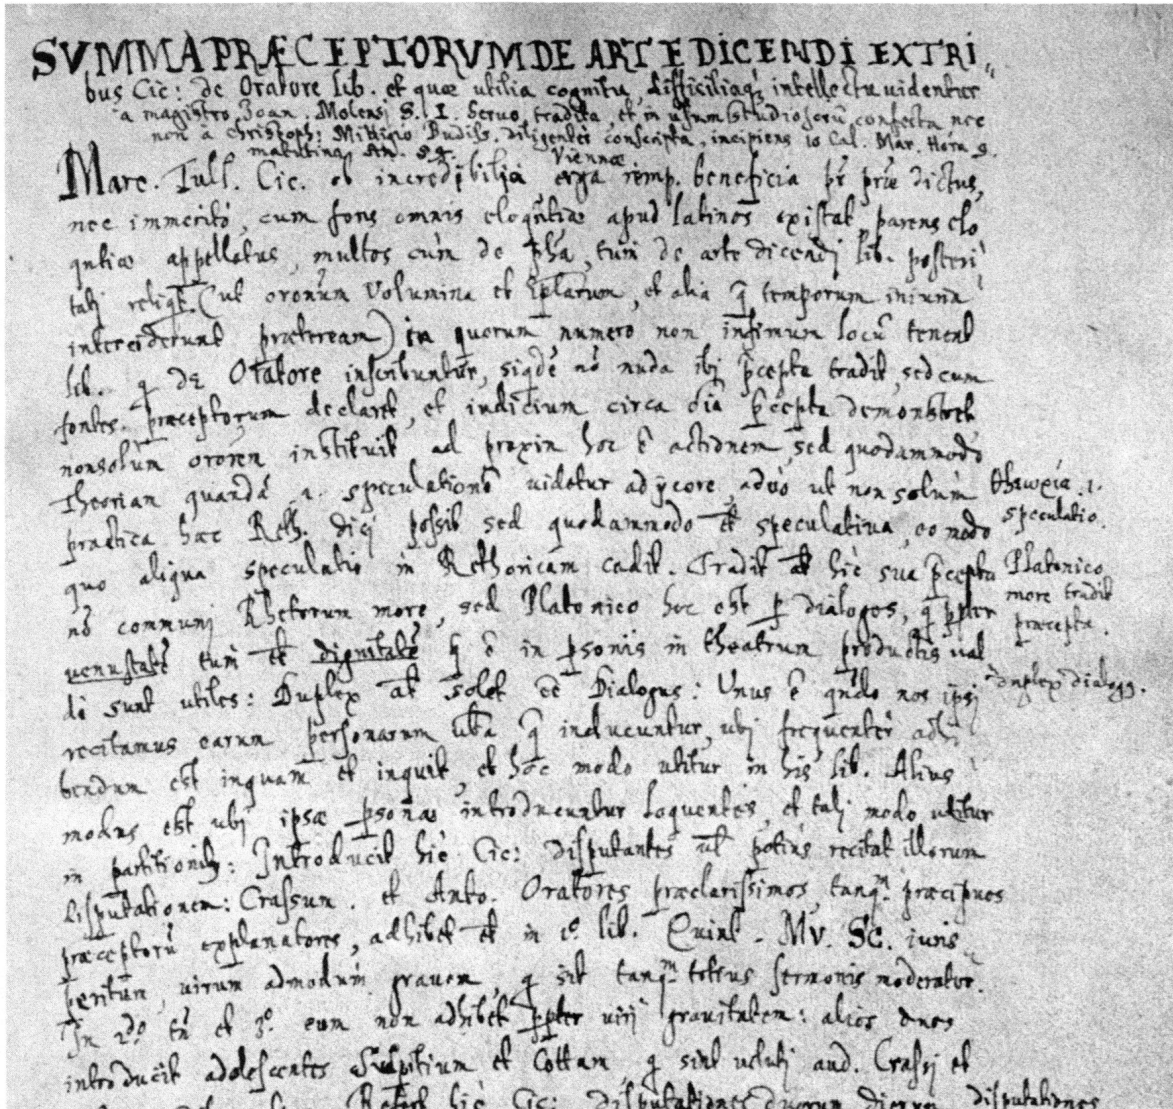 SVMMA PRÆCEPTORVM DE ARTE DICENDI EX TRI
bus Cic: de Oratore lib. et quæ utilia cognitu, difficiliaq; intellectu uidentur
a magistro Joan. Molensi S. I. Seruo tradita, et in usum studiosorũ confecta nec
non a Christoph: Mittigio Budiss. diligenter conscripta, incipiens 10 Cal. Mar. Hora 9.
matutina An. 59. Viennæ
Marc. Tull. Cic. ob incredibilia erga remp. beneficia pr̃ pr̃iæ dictus,
nec immeritò, cum fons omnis eloqñtiæ apud latinos existat, parens elo
qñtiæ appellatus, multos cùm de pħia, tum de arte dicendi lib. posteri
tati reliqt. (ut oronũm Volumina et Ep̃larum, et alia q̃ temporum iniuria
interciderunt præteream) in quorum numero non infimum locũ tenent
lib. q̃ DE Oratore inscribuntur, siqdẽ nõ nuda ibj p̃cepta tradit, sed cum
fontes præceptorum declaret, et iudicium circa oĩa p̃cepta demonstret,
non solùm ororem instituit ad praxin hoc ẽ actionem, sed quodammodò
Theorian quandã .i. speculationẽ uidetur adijcere, adeò ut non solùm
practica hæc Reth. dicj possit sed quodammodo et speculatiua, eo modo
quo aliqua speculatio in Rethoricam cadit. Tradit at hic sua p̃cepta
nõ communj Rhetorum more, sed Platonico hoc est p dialogos, q̃ ppter
uenustatẽ tum et dignitatẽ q̃ ẽ in psonis in theatrum productis ual
de sunt utiles: Duplex at solet eẽ Dialogus: Unus ẽ qñdo nos ipsj
recitamus earum personarum uba q̃ inducuntur, ubj frequenter adhi
bendum est inquam et inquit, et hoc modo utitur in his lib. Alius
modus est ubj ipsæ psonæ introducuntur loquentes, et talj modo utitur
in partitionib; Introducit hic Cic: disputantes ul potius recitat illorum
disputationem: Crassum. et Anto. Oratores præclarissimos, tanqm præcipuos
præceptorũ explanatores, adhibet et in 1º lib. Quint. MV. SC. iuris
peritum, uirum admodùm grauem, q̃ sit tanqm totius sermonis moderator.
In 2dº tñ et 3º eum non adhibet ppter uirj grauitatem: alios duos
introducit adolescentes Sulpitium et Cottam q̃ sint uelutj aud. Crassj et
hic Cic: disputationes duorum dierum disputationes
thaωρία .i.
speculatio.
Platonico
more tradit
præcepta.
duplex dialogg.